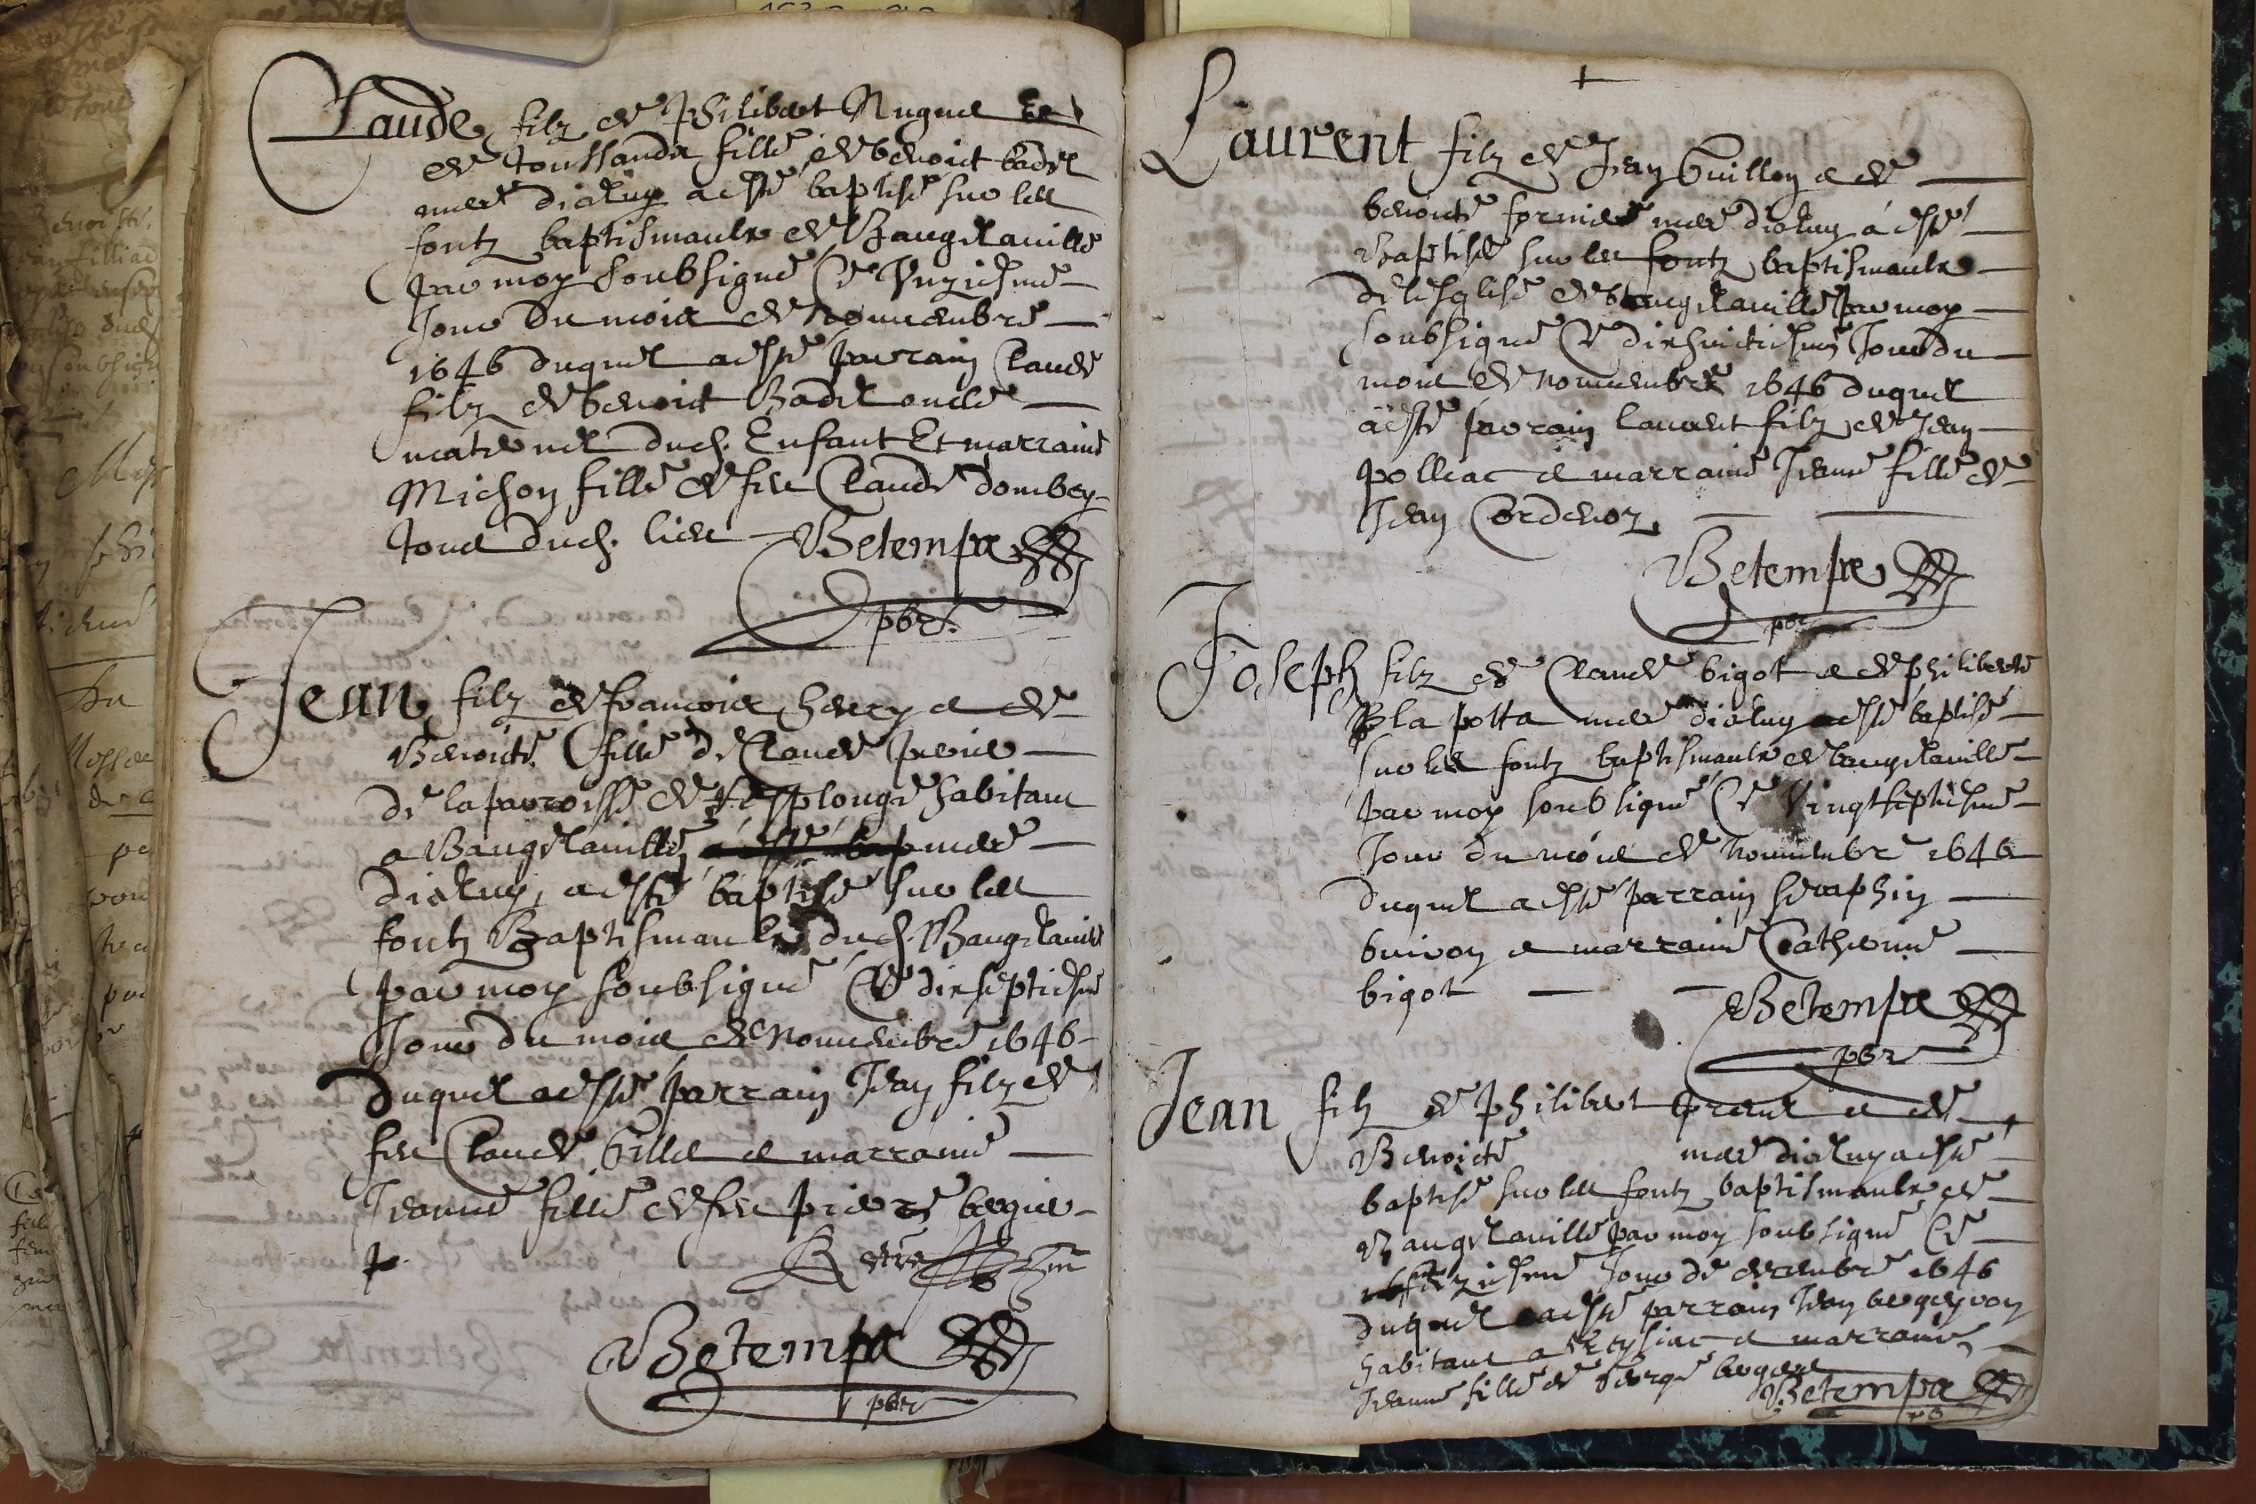 Claude filz de Philibert Nugue Et
de Toussande fille de benoict badel
mere diceluy a esté baptisé sur les
fontz baptismaulx de Baugelaville
par moy soubsigné Ce Unziesme
Jour du mois de novembre
1646 duquel a esté parrain Claude
filz de benoict Badel oncle
maternel dud. Enfant Et marraine
Michon fille de feu Claude dombey
tous dud. lieu Betemps
pbr.
Jean filz de francois henry et de
Benoicte fille de Claude
de la parroisse de habitans
a Baugelaville mere
diceluy, a esté baptisé sur les
fontz Baptismaulx dud. Baugelaville
par moy soubsigné Ce dixseptiesme
Jour du mois de Novembre 1646
duquel a esté parrain Jean filz de
feu Claude Gilles et marraine
Jeanne fille de feu pierre
Betemps
pbr
Laurent filz de Jean Guillon et de
benoicte mere diceluy a esté
Baptisé sur les fontz baptismaulx
de lesglise de baugelaville par moy
soubsigné Ce dixhuictiesme Jour du
mois de novembre 1646 duquel
a esté parrain laurent filz de Jean
polliac et marraine Jeanne fille de
Jean Cordenoz
Betemps
pbr
Joseph filz de Claude bigot et de philiberte
la potta mere diceluy a esté baptisé
sur les fontz baptismaulx de baugelaville
par moy soubsigné Ce Vingtseptiesme
Jour du mois de novembre 1646
duquel a esté parrain seraphin
buivon et marraine Catherine
bigot Betemps
pbr
Jean filz de Philibert et de
Benoicte mere diceluy a esté
baptisé sur les fontz baptismaulx de
Baugelaville par moy soubsigné Ce
Jour de decembre 1646
duquel a esté parrain Jean
habitans a et marraine
Jeanne fille de George
Betemps